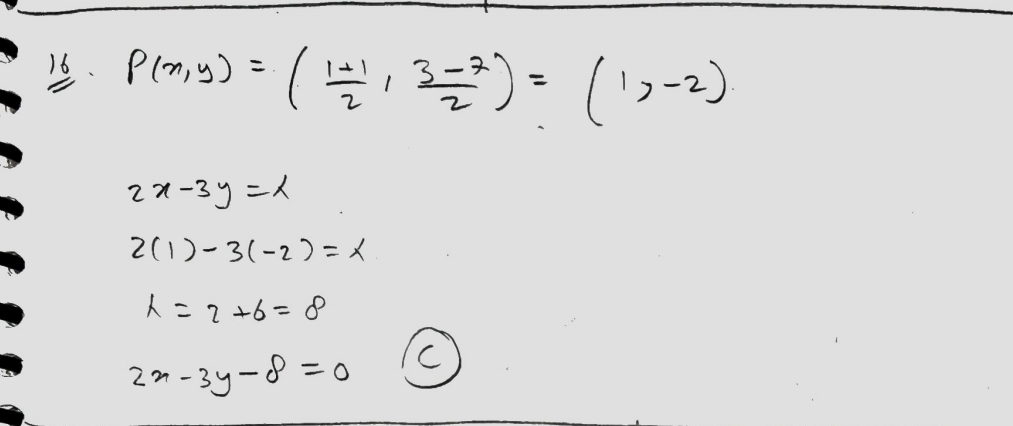 16. P(x,y) = ( 1+1/2 , 3-7/2 ) = (1, -2).
2x-3y = λ
2(1)-3(-2) = λ
λ = 2+6 = 8
2x-3y-8 = 0 (C)